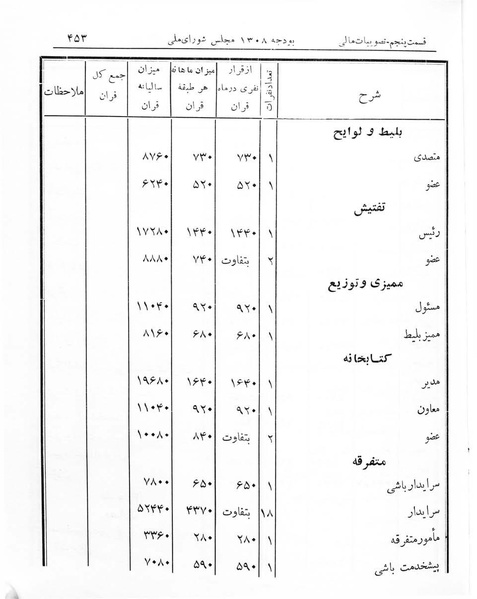 قسمت پنجم - تصویبات مالی بودجه ۱۳۰۸ مجلس شورای ملی ۴۵۳
شرح تعداد نفرات ازقرار نفری درماه قران میزان ماهانه هر طبقه قران میزان سالیانه قران جمع کل قران ملاحظات
بلیط و لوایح
متصدی ۱ ۷۳۰ ۷۳۰ ۸۷۶۰
عضو ۱ ۵۲۰ ۵۲۰ ۶۲۴۰
تفتیش
رئیس ۱ ۱۴۴۰ ۱۴۴۰ ۱۷۲۸۰
عضو ۲ بتفاوت ۷۴۰ ۸۸۸۰
ممیزی و توزیع
مسئول ۱ ۹۲۰ ۹۲۰ ۱۱۰۴۰
ممیز بلیط ۱ ۶۸۰ ۶۸۰ ۸۱۶۰
کتابخانه
مدیر ۱ ۱۶۴۰ ۱۶۴۰ ۱۹۶۸۰
معاون ۱ ۹۲۰ ۹۲۰ ۱۱۰۴۰
عضو ۲ بتفاوت ۸۴۰ ۱۰۰۸۰
متفرقه
سرایدار باشی ۱ ۶۵۰ ۶۵۰ ۷۸۰۰
سرایدار ۱۸ بتفاوت ۴۳۷۰ ۵۲۴۴۰
مأمور متفرقه ۱ ۲۸۰ ۲۸۰ ۳۳۶۰
پیشخدمت باشی ۱ ۵۹۰ ۵۹۰ ۷۰۸۰